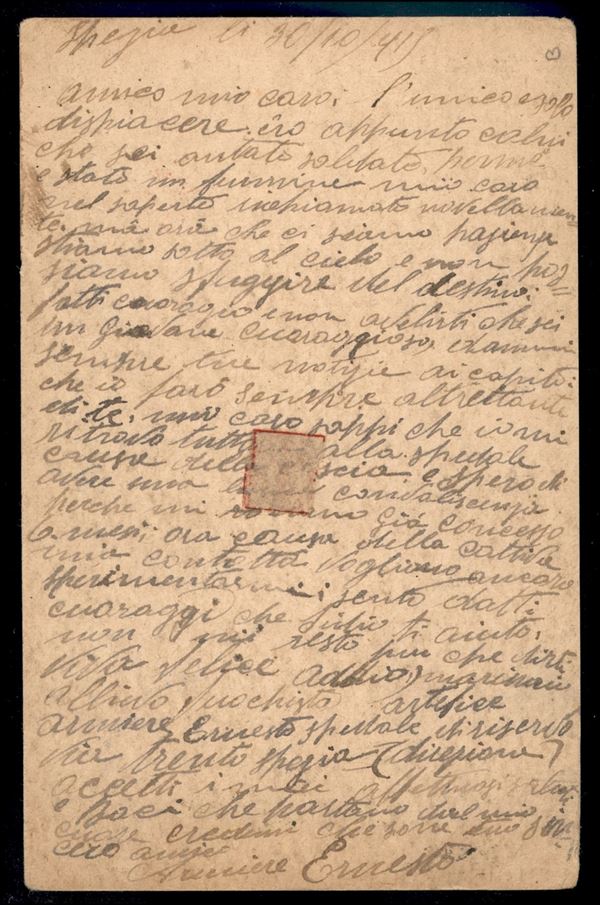 Spezia li 30/10/415
amico mio caro. l'unico e solo
dispiacere. ero appunto colui
che sei antato soldato, perme
e stato un fulmine mio caro
nel saperti richiamato novellamen=
te. ma ora che ci siamo pazienza
stiamo sotto al cielo e non pos=
siamo sfuggire del destino:
fatti coraggio e non avelirti che sei
un giovane curaggioso, e dammi
sempre tue notizie ai capito:
che io farò sempre altrettante
di te. mio caro sappi che io mi
ritrovo alla spedale
causa della e spero di
avere una condaliscenza
perche mi già concesso
6 mesi. ora causa della cattiva
mia contotta vogliano ancora
sperimentarmi; sento datti
curaggi che Iddio ti aiuto.
non mi resto piu che dirti
viva felice addio, marinaio
allievo fuochista artefice
armiere Ernesto spedale di riserva
via trento spezia (direzione)
accetti i miei affettuosi saluti
e baci che partano dal mio
cuore credimi che sono tuo sin=
cero amico
Armiere Ernesto